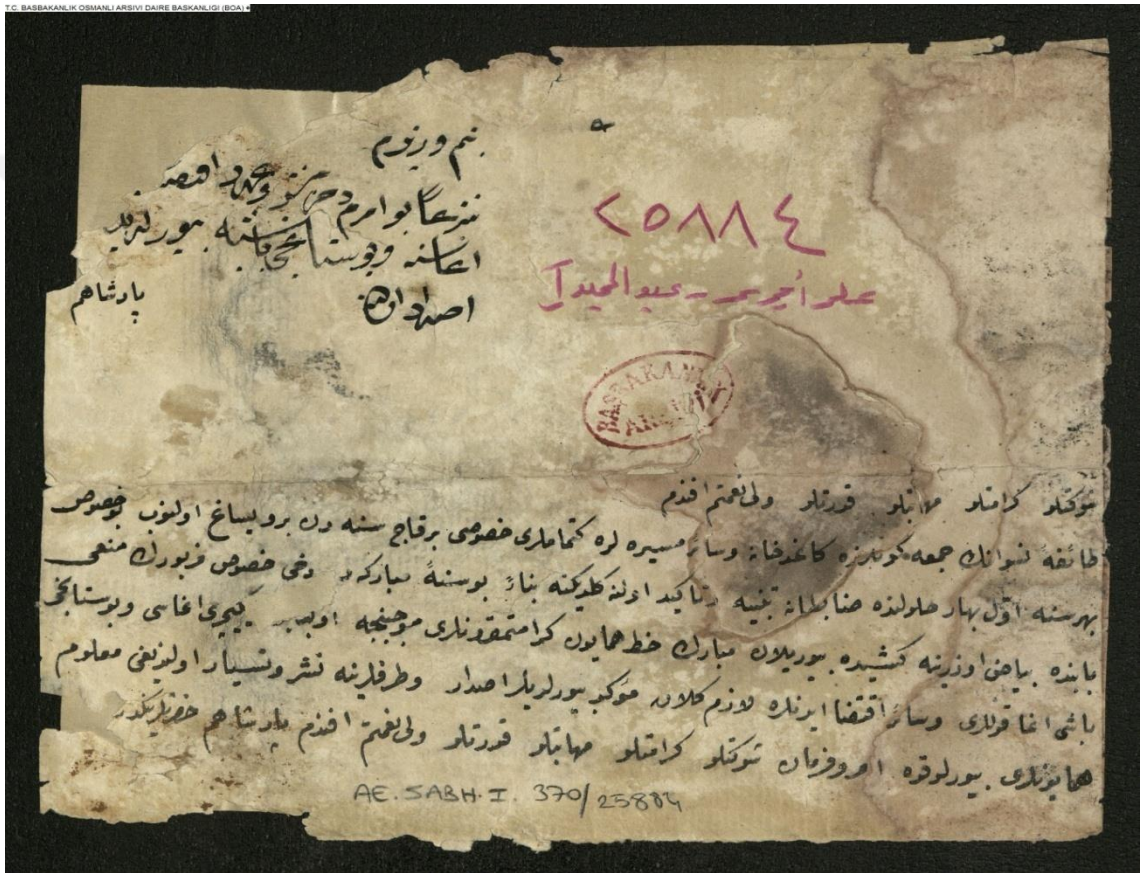 T.C. BASBAKANLIK OSMANLI ARSIVI DAIRE BASKANLIGI (BOA)
بنم وزیرم
بو امرم
اغاسنه و بوستانجی باشیه بیورلدیلر
پادشاهم
٢٥٨٨٤
علی أمیری - عبد الحمید I
BAŞBAKANLIK
ARŞİVİ
شوکتلو کرامتلو مهابتلو قدرتلو ولی نعمتم افندم
طائفهٔ نسوانك جمعه کونلرنده کاغدخانه و سائر مسیره لره کتماملری خصوصی برقاج سنه دن برو یساغ اولنوب بو خصوص
بهر سنه اول بهار حلولنده ضابطانه تنبیه و تاکید اولنه کلدیکنه بناءً بو سنهٔ مبارکه ده دخی خصوص مزبورك منعی
بابنده بیاض اوزرینه کشیده بیوریلان مبارك خط همایون کرامتمقرونلری موجبنجه یکیچری اغاسی و بوستانجی
باشی اغا قوللری و سائر اقتضا ایدنلره لازم کلان مؤکد بیورلدیلر اصدار و طرفلرینه نشر و تسیار اولندیغی معلوم
همایونلری بیورلدقده امر و فرمان شوکتلو کرامتلو مهابتلو قدرتلو ولی نعمتم افندم پادشاهم حضرتلرینکدر
AE. SABH. I. 370/25884